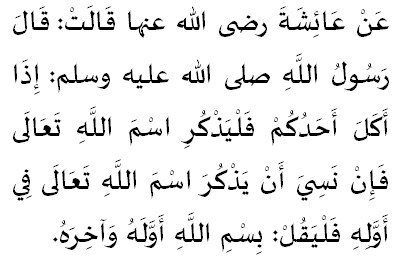 عَنْ عَائِشَةَ رضى الله عنها قَالَتْ: قَالَ
رَسُولُ اللَّهِ صلى الله عليه وسلم: إِذَا
أَكَلَ أَحَدُكُمْ فَلْيَذْكُرِ اسْمَ اللَّهِ تَعَالَى
فَإِنْ نَسِيَ أَنْ يَذْكُرَ اسْمَ اللَّهِ تَعَالَى فِي
أَوَّلِهِ فَلْيَقُلْ: بِسْمِ اللَّهِ أَوَّلَهُ وَآخِرَهُ.